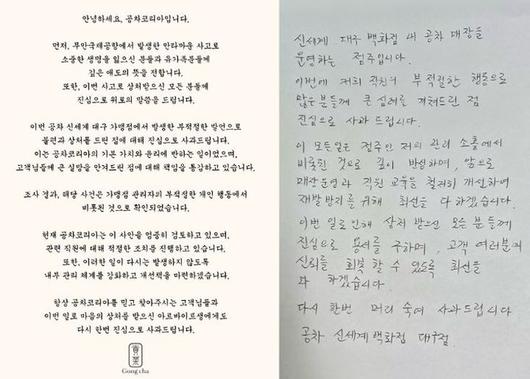 안녕하세요, 공차코리아입니다.
먼저, 무안국제공항에서 발생한 안타까운 사고로
소중한 생명을 잃으신 분들과 유가족분들께
깊은 애도의 뜻을 전합니다.
또한, 이번 사고로 상처받으신 모든 분들께
진심으로 위로의 말씀을 드립니다.
이번 공차 신세계 대구 가맹점에서 발생한 부적절한 발언으로
불편과 상처를 드린 점에 대해 진심으로 사과드립니다.
이는 공차코리아의 기본 가치와 윤리에 반하는 일이었으며,
고객님들께 큰 실망을 안겨드린 점에 대해 책임을 통감하고 있습니다.
조사 결과, 해당 사건은 가맹점 관리자의 부적절한 개인 행동에서
비롯된 것으로 확인되었습니다.
현재 공차코리아는 이 사안을 엄중히 검토하고 있으며,
관련 직원에 대해 적절한 조치를 진행하고 있습니다.
또한, 이러한 일이 다시는 발생하지 않도록
내부 관리 체계를 강화하고 개선책을 마련하겠습니다.
항상 공차코리아를 믿고 찾아주시는 고객님들과
이번 일로 마음의 상처를 받으신 아르바이트생에게도
다시 한번 진심으로 사과드립니다.
貢茶
Gong cha
신세계 대구 백화점 내 공차 매장을
운영하는 점주입니다.
이번에 저희 직원의 부적절한 행동으로
많은 분들께 큰 심려를 끼쳐드린 점
진심으로 사과 드립니다.
이 모든일은 점주인 저의 관리 소홀에서
비롯된 것으로 깊이 반성하며, 앞으로
매장운영과 직원 교육을 철저히 개선하여
재발방지를 위해 최선을 다 하겠습니다.
이번 일로 인해 상처 받으신 모든 분들께
진심으로 용서를 구하며, 고객 여러분께
신뢰를 회복 할 수 있도록 최선을
다 하겠습니다.
다시 한번 머리 숙여 사과드립니다
공차 신세계백화점 대구점.